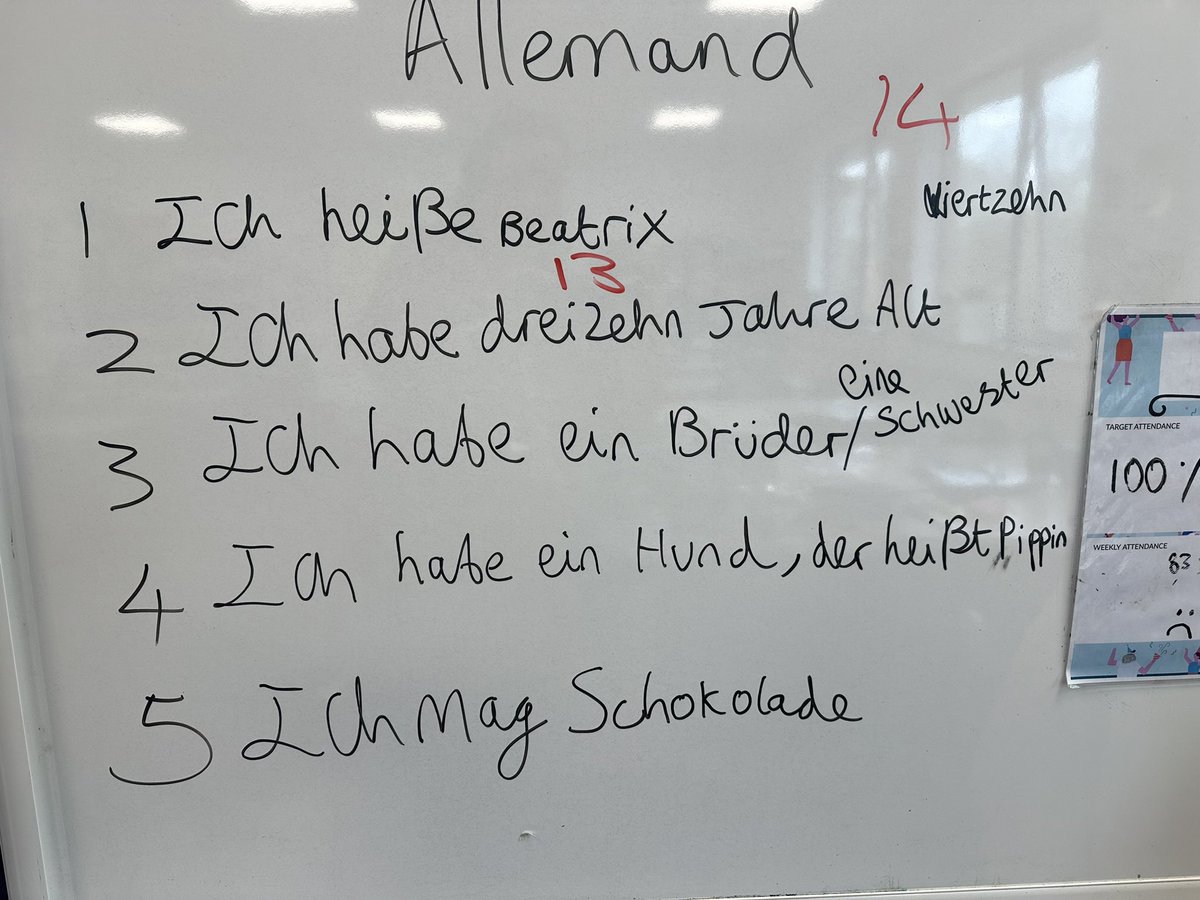 Allemand
14
Viertzehn
1 Ich heiße Beatrix
13
2 Ich habe dreizehn Jahre Alt
eine
3 Ich habe ein Brüder/Schwester
4 Ich habe ein Hund, der heißt Pippin
5 Ich mag Schokolade
TARGET ATTENDANCE
100 %
WEEKLY ATTENDANCE
83